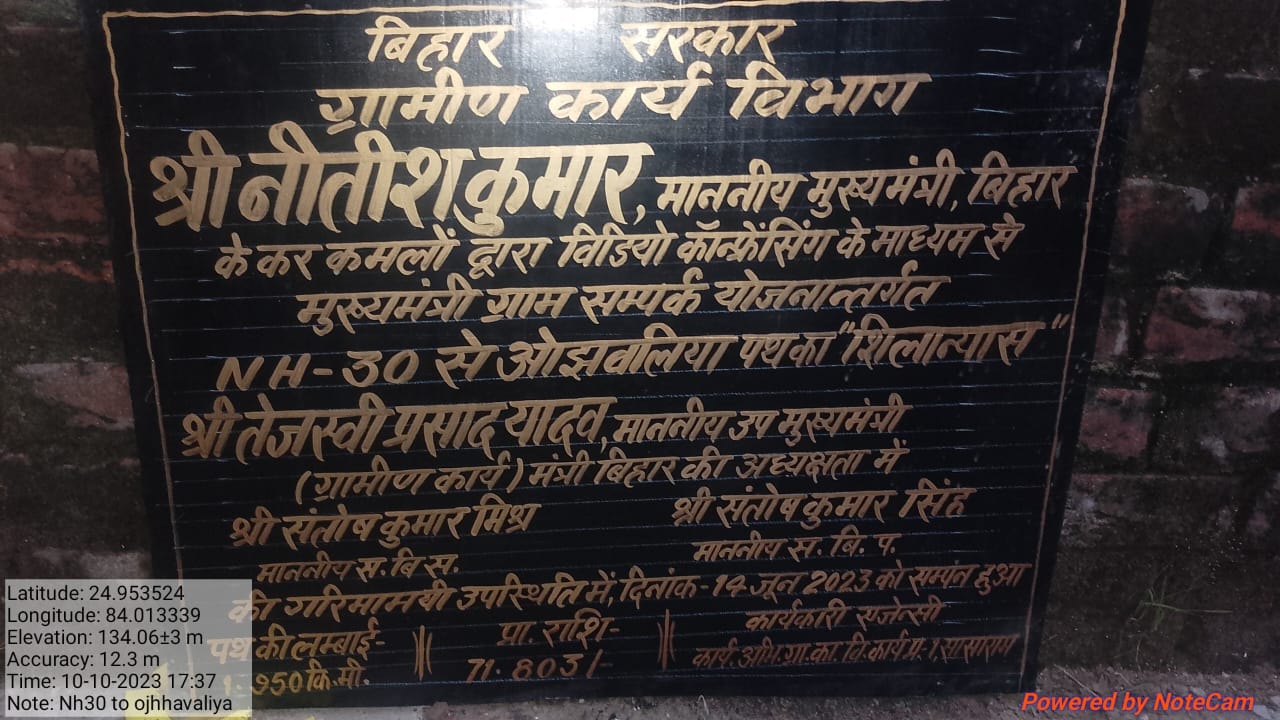 बिहार सरकार
ग्रामीण कार्य विभाग
श्री नीतीश कुमार, माननीय मुख्यमंत्री, बिहार
के कर कमलों द्वारा विडियो कॉन्फ्रेंसिंग के माध्यम से
मुख्यमंत्री ग्राम सम्पर्क योजनान्तर्गत
NH-30 से ओझवलिया पथ का "शिलान्यास"
श्री तेजस्वी प्रसाद यादव, माननीय उप मुख्यमंत्री
(ग्रामीण कार्य) मंत्री बिहार की अध्यक्षता में
श्री संतोष कुमार मिश्र श्री संतोष कुमार सिंह
माननीय स. बि स. माननीय स. बि. प.
की गरिमामयी उपस्थिति में, दिनांक- 14 जून 2023 को सम्पंन हुआ
पथ की लम्बाई- प्रा. राशि- कार्यकारी एजेन्सी
1.950 कि.मी. 71.803/- कार्य. अभि. ग्रा. का. वि. कार्य प्र. 1, सासाराम
Latitude: 24.953524
Longitude: 84.013339
Elevation: 134.06±3 m
Accuracy: 12.3 m
Time: 10-10-2023 17:37
Note: Nh30 to ojhhavaliya
Powered by NoteCam